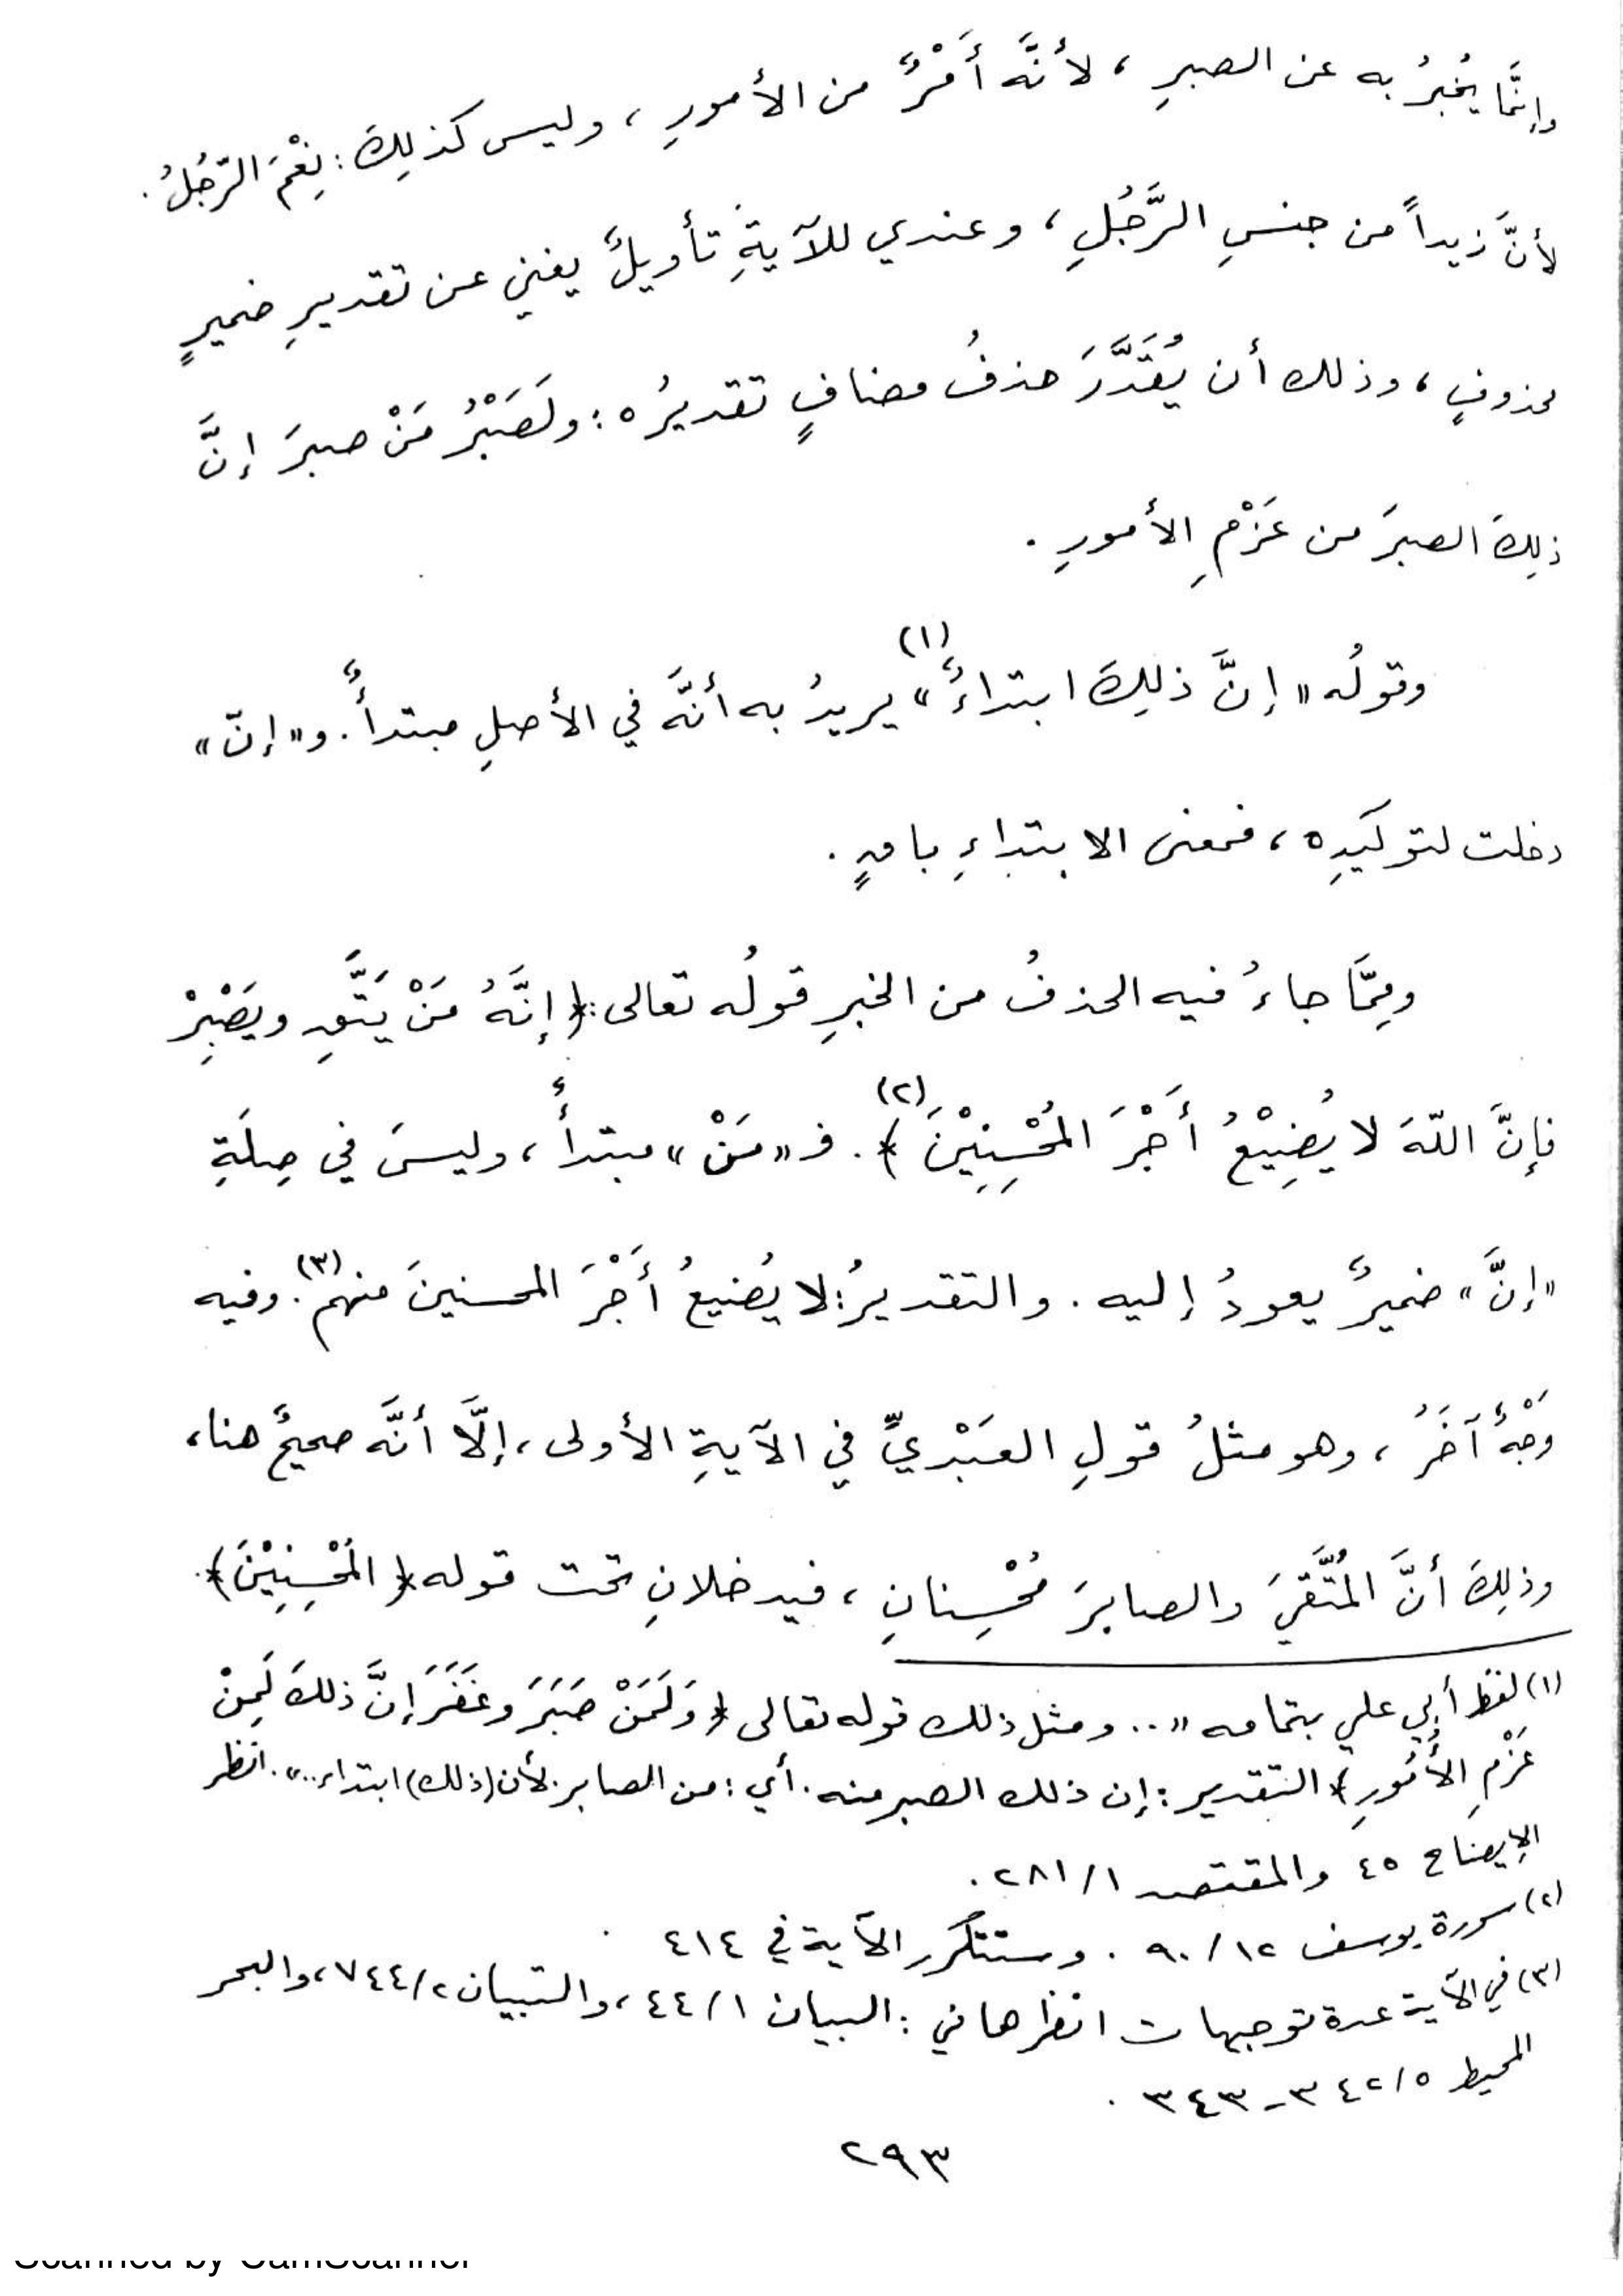 وإنَّما يُخبرُ به عن الصبرِ ، لأنَّه أَمْرٌ من الأمورِ ، وليس كذلِكَ : نِعْمَ الرّجُلُ .
لأنَّ زيداً من جنسِ الرَّجُلِ ، وعندي للآيةِ تأويلٌ يغني عن تقديرِ ضميرٍ
محذوفٍ ، وذلك أن يُقَدَّرَ حذفُ مضافٍ تقديرُه : ولَصَبْرُ مَنْ صبرَ إنَّ
ذلِكَ الصبرَ من عَزْمِ الأمورِ .
وقولُه « إنَّ ذلِكَ ابتداءٌ »(١) يريدُ به أنَّه في الأصلِ مبتدأٌ . و« إنّ »
دخلت لتوكيدِه ، فمعنى الابتداءِ باقٍ .
ومِمَّا جاءَ فيه الحذفُ من الخبرِ قولُه تعالى : ﴿ إنَّهُ مَنْ يَتَّقِ ويَصْبِرْ
فإنَّ اللّهَ لا يُضِيْعُ أَجْرَ المُحْسِنِيْنَ ﴾(٢) . فـ « مَنْ » مبتدأٌ ، وليسَ في صِلَةِ
« إنَّ » ضميرٌ يعودُ إليه . والتقديرُ : لا يُضيعُ أَجْرَ المحسنينَ منهم(٣) . وفيه
وَجْهٌ آخَرُ ، وهو مثلُ قولِ العَبْديِّ في الآيةِ الأولى ، إلَّا أنَّه صحيحٌ هنا ،
وذلِكَ أنَّ المُتَّقيَ والصابرَ مُحْسِنانِ ، فيدخلانِ تحت قوله ﴿ المُحْسِنِيْنَ ﴾ .
(١) لفظ أبي علي بتمامه « .. ومثل ذلك قوله تعالى ﴿ وَلَمَنْ صَبَرَ وغَفَرَ إنَّ ذلكَ لَمِنْ
عَزْمِ الأُمُورِ ﴾ التقدير : إن ذلك الصبر منه . أي : من الصابر . لأن (ذلك) ابتداء .. » . انظر
الإيضاح ٤٥ والمقتصد ١/٢٨١ .
(٢) سورة يوسف ١٢/٩٠ . وستتكرر الآية في ٤١٤
(٣) في الآية عدة توجيهات انظرها في : البيان ١/٤٤ ، والتبيان ٢/٧٤٤ ، والبحر
المحيط ٥/٣٤٢ - ٣٤٣ .
٢٩٣
Scanned by CamScanner